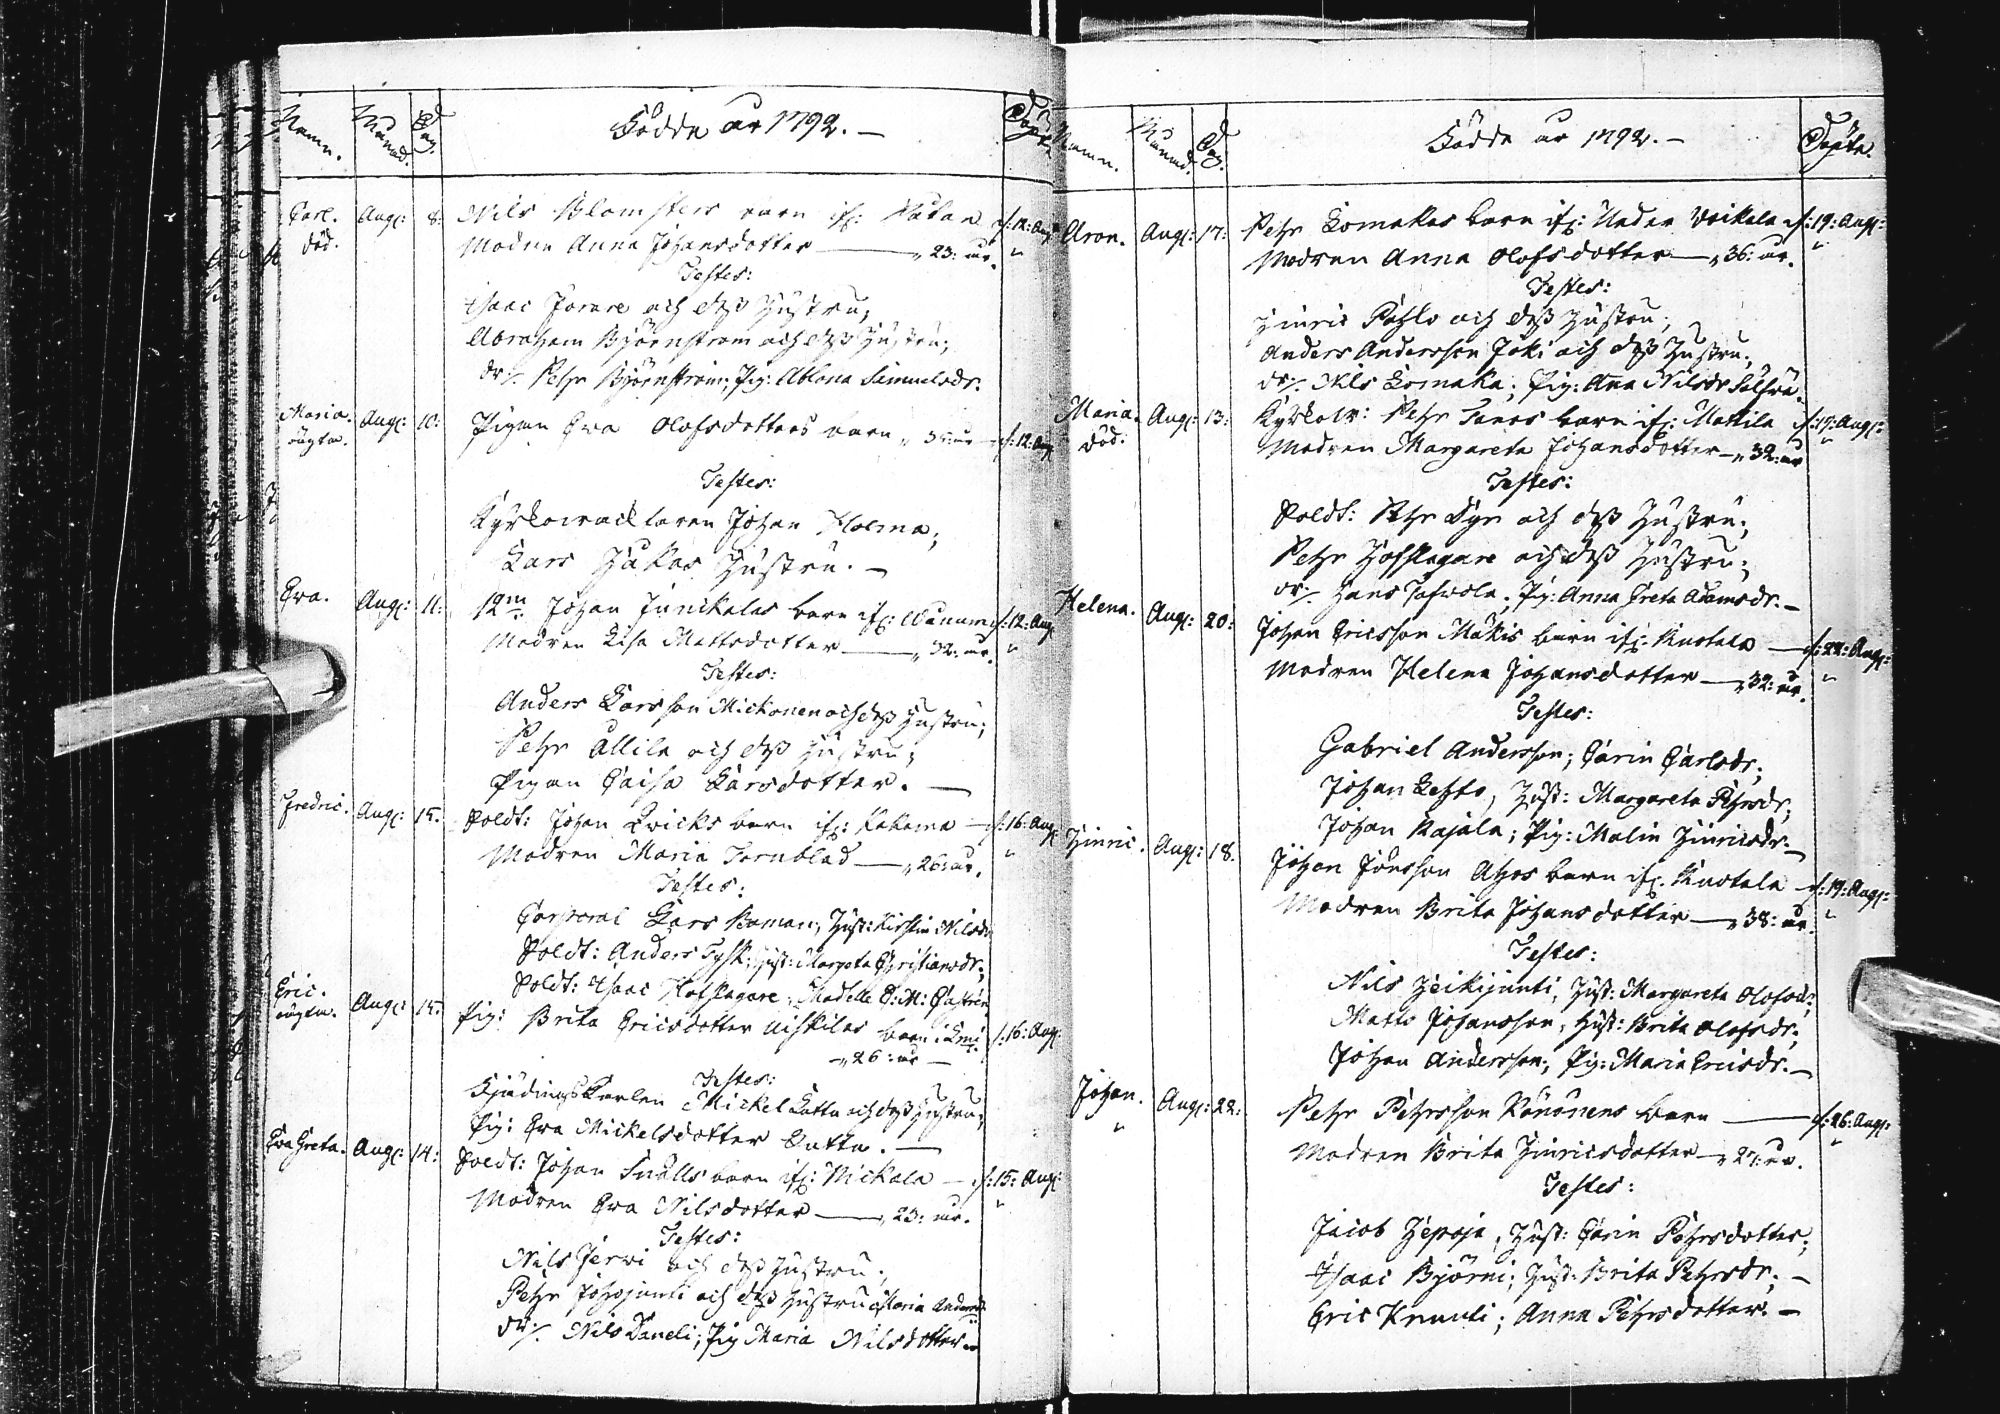 Namn. Månad. Dag. Födde år 1792. – Döpte
Carl. Aug: 8: Nils Blomsters barn if: d: 12: Aug:
död. Modren Anna Johansdotter — „ 23: år. „
Testes:
Isaac Forare och dess Hustru;
Abraham Björnström och dess Hustru;
dr/. Petr Björnström; Pig: Ablona Samuelsdr.
Maria. Aug: 10: Pigan Eva Olofsdotters barn „ år d: 12: Aug
oägta.
Testes:
Kyrkowacktaren Johan Holma;
Lars Hustru. –
Eva. Aug: 11: Johan Junikalas barn if: d: 12: Aug
Modren Lisa Mattsdotter — „ 32: år. „
Testes:
Anders Larsson Mickonen och dess Hustru;
Petr Ollila och dess Hustru;
Pigan Caisa Larsdotter. —
Fredric. Aug: 15. Soldt: Johan Qvicks barn if: Kakama – d: 16: Aug
Modren Maria Törnblad — „ 26: år. „
Testes:
Corporal Lars Boman, Hust: Kirstin Nilsdr
Soldt: Anders Tysk; Hust: Margeta Christiansdr;
Soldt: Isaac Hofslagare, Madelle C: M: Castrén
Eric. Aug: 15. Pig: Brita Ericsdotter barn i Kmi d: 16: Aug:
oägta. – „ 26: år —
Testes:
Mickel Latta och dess Hustru;
Pig: Eva Mickelsdotter Latta. —
Eva Greta. Aug: 14: Soldt: Johan Snälls barn if: Mickala – d: 15: Aug:
Modren Eva Nilsdotter — „ 23: år. „
Testes:
Nils Jerwi och dess Hustru;
Petr och dess Hustru Maria Andersdr
dr/. Nils Daneli; Pig Maria Nilsdotter –
Namn. Månad. Dag. Födde år 1792. – Döpte.
Aron. Aug: 17: Petr Lomakas barn if: Neder Voikala d: 19: Aug:
Modren Anna Olofsdotter — „ 36: år. „
Testes:
Hinric Pohlo och dess Hustru;
Anders Andersson Joki och dess Hustru;
dr/. Nils Lomaka; Pig: Ana Nilsdr
Maria. Aug: 13: Petr barn if: Mattila d: 19: Aug:
död. Modren Margareta Johansdotter – „ 32: år „
Testes:
Soldt: Petr och dess Hustru;
Petr Hofslagare och dess Hustru;
dr/. Hans; Pig: Anna Greta Adamsdr. –
Helena. Aug: 20: Johan Ericsson Mäkis barn if: Ruotala — d: 22: Aug:
Modren Helena Johansdotter — „ 32: år. „
Testes:
Gabriel Andersson; Carin Carlsdr;
Johan Lehto, Hust: Margareta Pehrsdr;
Johan Rajala; Pig: Malin Hinricsdr –
Hinric. Aug: 18. Johan Jönsson Ahos barn if: Ruotala – d: 19: Aug:
Modren Brita Johansdotter — „ 38: år. „
Testes:
Nils Heikijunti, Hust: Margareta Olofsdr;
Matts Johansson, Hust: Brita Olofsdr;
Johan Andersson; Pig: Maria Ericsdr. –
Johan. Aug: 22: Petr Pehrsson Könönens barn — d: 26: Aug:
„ Modren Brita Hinricsdotter – „ 27: år. „
Testes:
Jacob Hepoja, Hust: Carin Pehrsdotter;
Isaac Björni; Hust: Brita Pehrsdr; –
Eric Knuuti; Anna Pehrsdotter. –